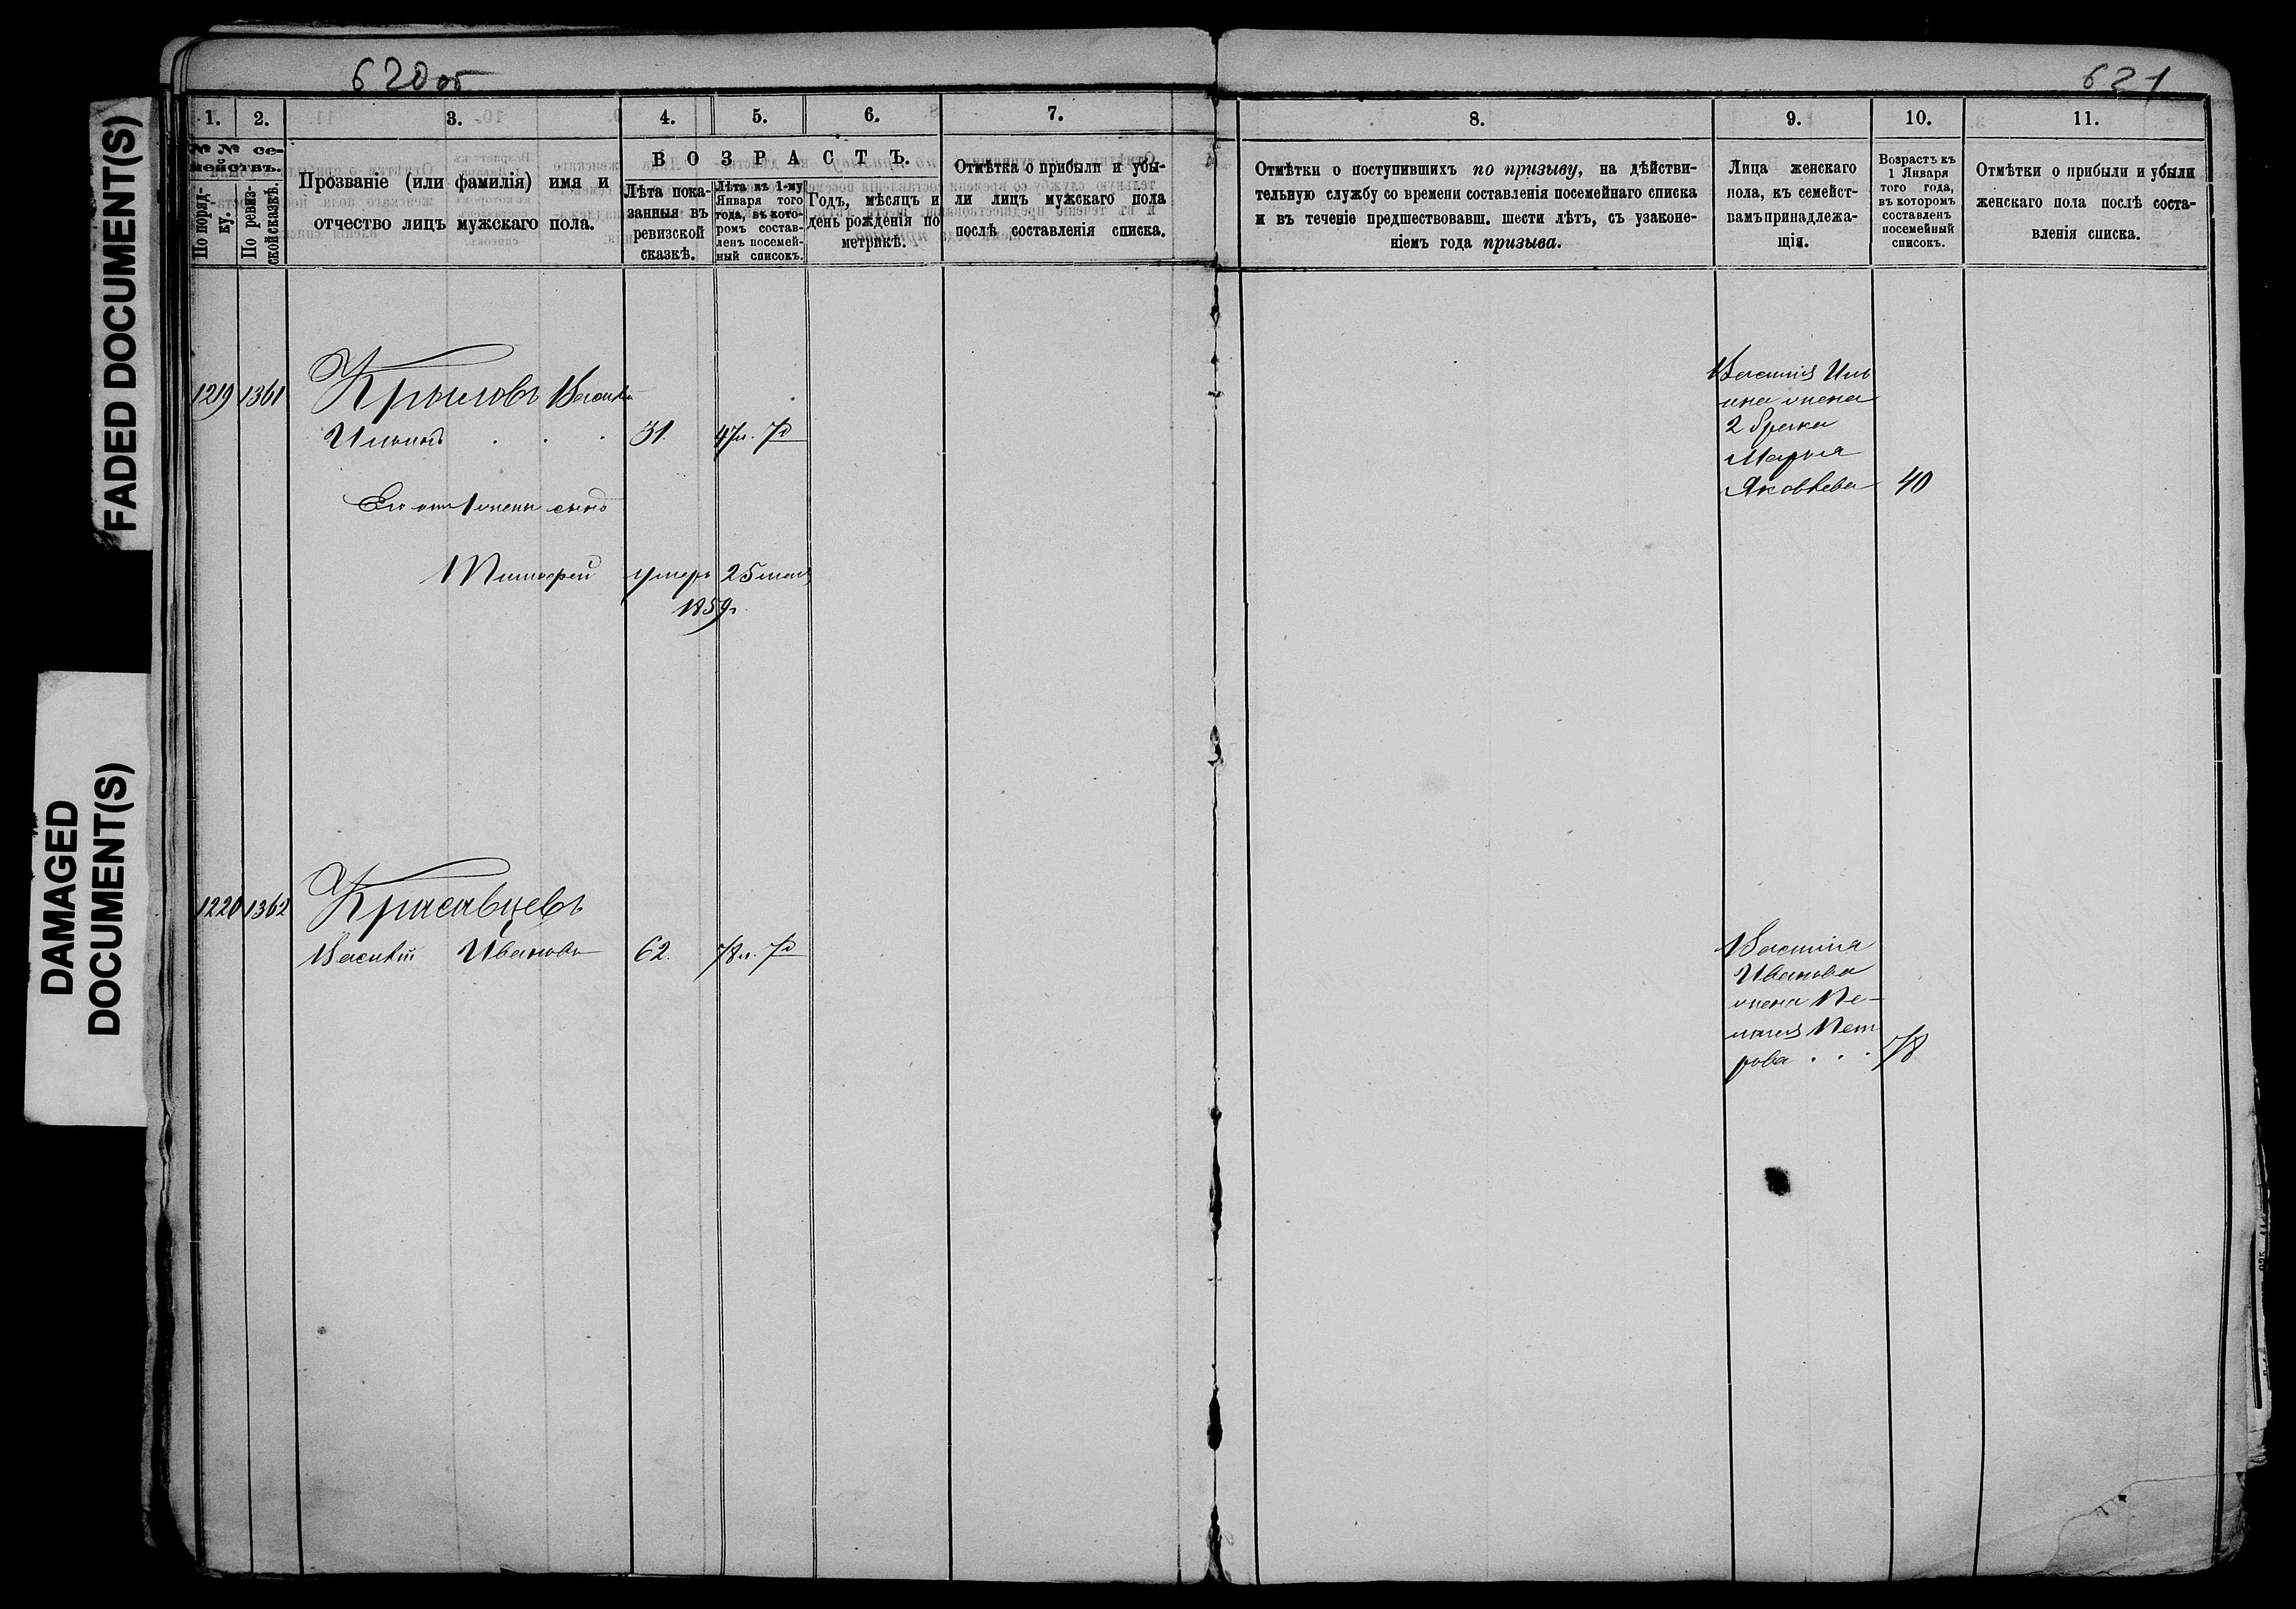 FADED DOCUMENT(S)
DAMAGED
DOCUMENT(S)
620об
621
1.
2.
3.
4.
5.
6.
7.
8.
9.
10.
11.
№ № се-
мействъ.
По поряд-
ку.
По ревиз-
ской сказкѣ.
Прозваніе (или фамилія) имя и
отчество лицъ мужскаго пола.
ВОЗРАСТЪ.
Лѣта пока-
занныя въ
ревизской
сказкѣ.
Лѣта къ 1-му
Января того
года, въ кото-
ромъ состав-
ленъ посемей-
ный списокъ.
Годъ, мѣсяцъ и
день рожденія по
метрикѣ.
Отмѣтка о прибыли и убы-
ли лицъ мужскаго пола
послѣ составленія списка.
Отмѣтки о поступившихъ по призыву, на дѣйстви-
тельную службу со времени составленія посемейнаго списка
и въ теченіе предшествовавш. шести лѣтъ, съ узаконе-
ніемъ года призыва.
Лица женскаго
пола, къ семейст-
вамъ принадлежа-
щія.
Возрастъ къ
1 Января
того года,
въ которомъ
составленъ
посемейный
списокъ.
Отмѣтки о прибыли и убыли
женскаго пола послѣ соста-
вленія списка.
1219 1361 Крыловъ Василій
Ильинъ . . . 31. 47л. 7д
Его отъ 1 жены сынъ
Тимофей умеръ 25 мая
1859г.
Василія Иль
ина жена
2 брака
Марья
Яковлева 40
1220 1362 Красавцевъ
Василій Ивановъ 62. 78л. 7д
Василія
Иванова
жена Пе-
лагея Пет
рова . . . 78